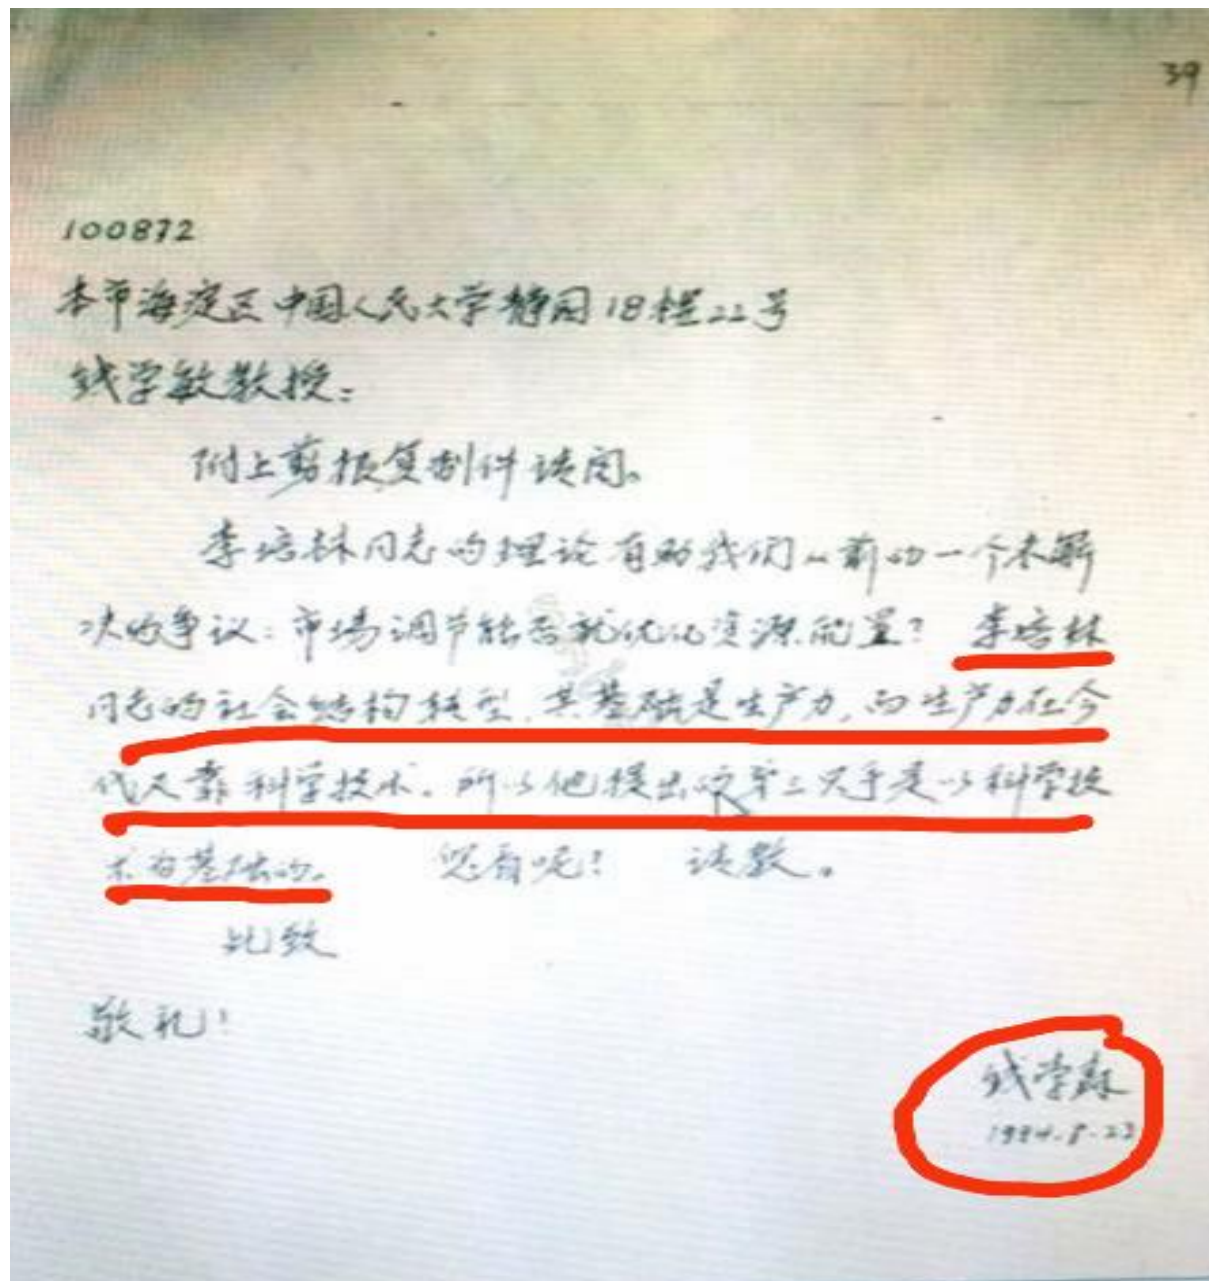 39
100872
本市海淀区中国人民大学静园18楼22号
钱学敏教授：
附上剪报复制件请阅。
李培林同志的理论有助我们以前的一个未解
决的争议：市场调节能否就优化资源配置？ 李培林
同志的社会结构转型，其基础是生产力，而生产力在今
代又靠科学技术。所以他提出的第二只手是以科学技
术为基础的。 您看呢？ 请教。
此致
敬礼！
钱学森
1994.8.23